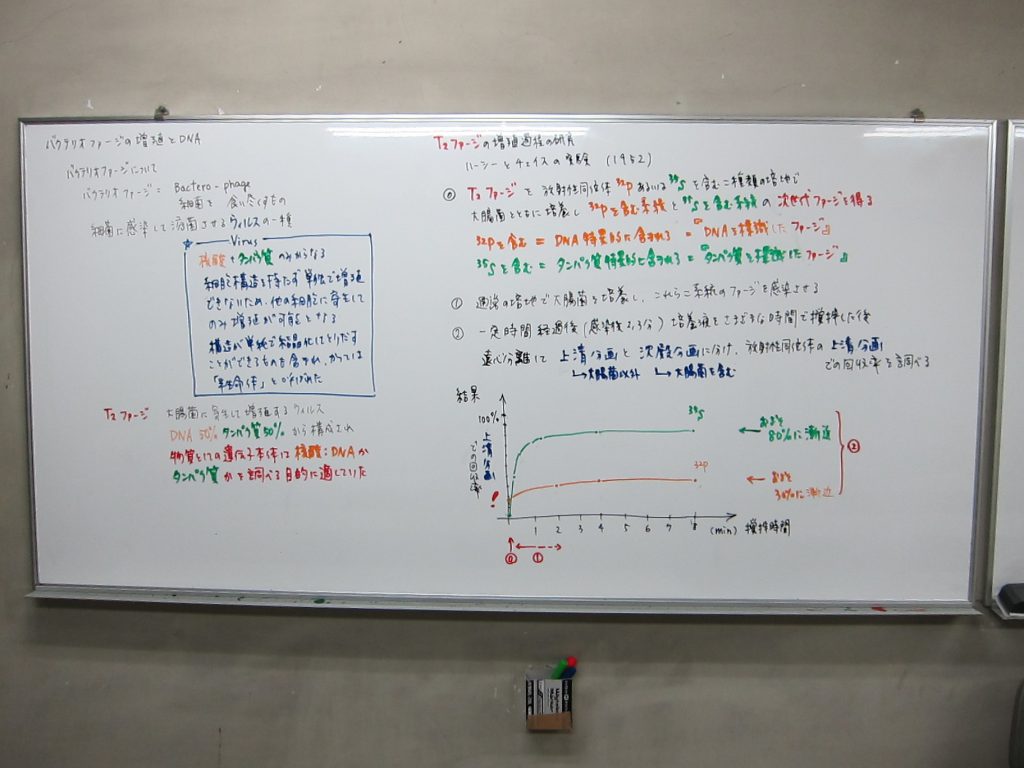 バクテリオファージの増殖とDNA
バクテリオファージについて
バクテリオファージ = Bacterio-phage
細菌を 食い尽くすもの
細菌に感染して溶菌させるウィルスの一種
Virus
核酸+タンパク質のみからなる
細胞構造を持たず単独で増殖
できないため、他の細胞に寄生して
のみ増殖が可能となる
構造が単純で結晶化してとりだす
ことができるものも含まれ、かつては
「半生命体」と呼ばれた
T2ファージ 大腸菌に寄生して増殖するウィルス
DNA 50% タンパク質50% から構成され
物質としての遺伝子本体は核酸:DNAか
タンパク質かを調べる目的に適していた
T2ファージの増殖過程の研究
ハーシーとチェイスの実験 (1952)
⓪ T2ファージを放射性同位体32Pあるいは35Sを含む二種類の培地で
大腸菌とともに培養し32Pを含む系統と35Sを含む系統の次世代ファージを得る
32Pを含む = DNA特異的に含まれる = 『DNAを標識したファージ』
35Sを含む = タンパク質特異的に含まれる = 『タンパク質を標識したファージ』
① 通常の培地で大腸菌を培養し、これら二系統のファージを感染させる
② 一定時間経過後(感染後2,3分)培養液をさまざまな時間で攪拌した後
遠心分離して 上清分画と沈殿分画に分け、放射性同位体の上清分画
での回収率を調べる
↳大腸菌以外 ↳大腸菌を含む
結果
100%
上清分画
での回収率
!
35S
← およそ
80%に漸近
32P
← およそ
30%に漸近
②
1 2 3 4 5 6 7 8 (min) 攪拌時間
⓪ ①